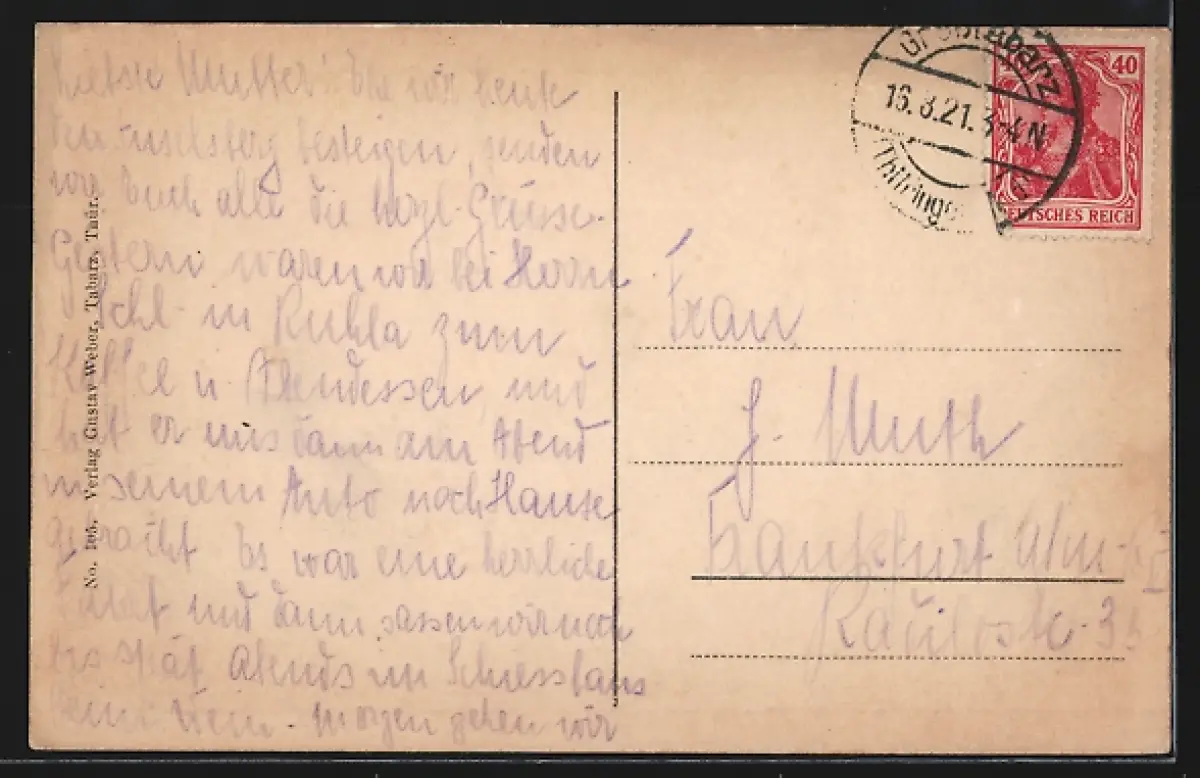 Liebste Mutter! Ehe wir heute
den Inselsberg besteigen, senden
wir Euch alle die herzl. Grüsse.
Gestern waren wir bei Herrn
Schl. in Ruhla zum
Kaffee u. Abendessen und
hat er uns dann am Abend
in seinem Auto nach Hause
gebracht Es war eine herrliche
Fahrt und dann sassen wir noch
bis spät Abends im Schiesshaus
beim Wein. Morgen gehen wir
No. 105. Verlag Gustav Weber, Tabarz, Thür.
Grosstabarz
16.8.21. 3-4 N
(Thüringe
40
DEUTSCHES REICH
Frau
J. Muth
Frankfurt a/m